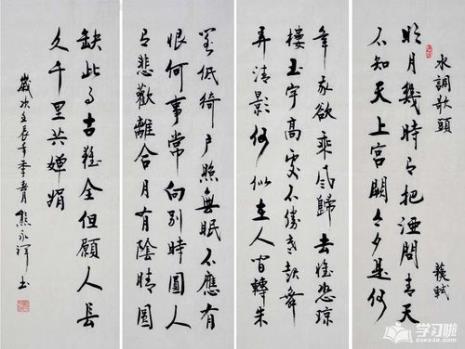 水調歌頭 蘇軾
明月幾時有把酒問青天
不知天上宮闕今夕是何
年我欲乘風歸去惟恐瓊
樓玉宇高處不勝寒起舞
弄清影何似在人間轉朱
閣低綺戶照無眠不應有
恨何事常向別時圓人
有悲歡離合月有陰晴圓
缺此事古難全但願人長
久千里共嬋娟
歲次壬辰年季春月熊永 书
学习啦